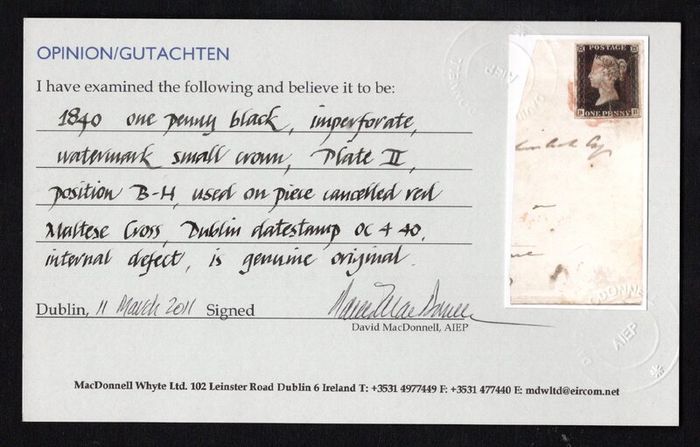 OPINION/GUTACHTEN
I have examined the following and believe it to be:
1840 one penny black, imperforate,
watermark small crown, Plate II,
position B-H, used on piece cancelled red
Maltese Cross, Dublin datestamp OC 4 40,
internal defect, is genuine original.
Dublin, 11 March 2011 Signed
David MacDonnell, AIEP
MacDonnell Whyte Ltd. 102 Leinster Road Dublin 6 Ireland T: +3531 4977449 F: +3531 477440 E: mdwltd@eircom.net
POSTAGE
ONE PENNY
AIEP
AIEP